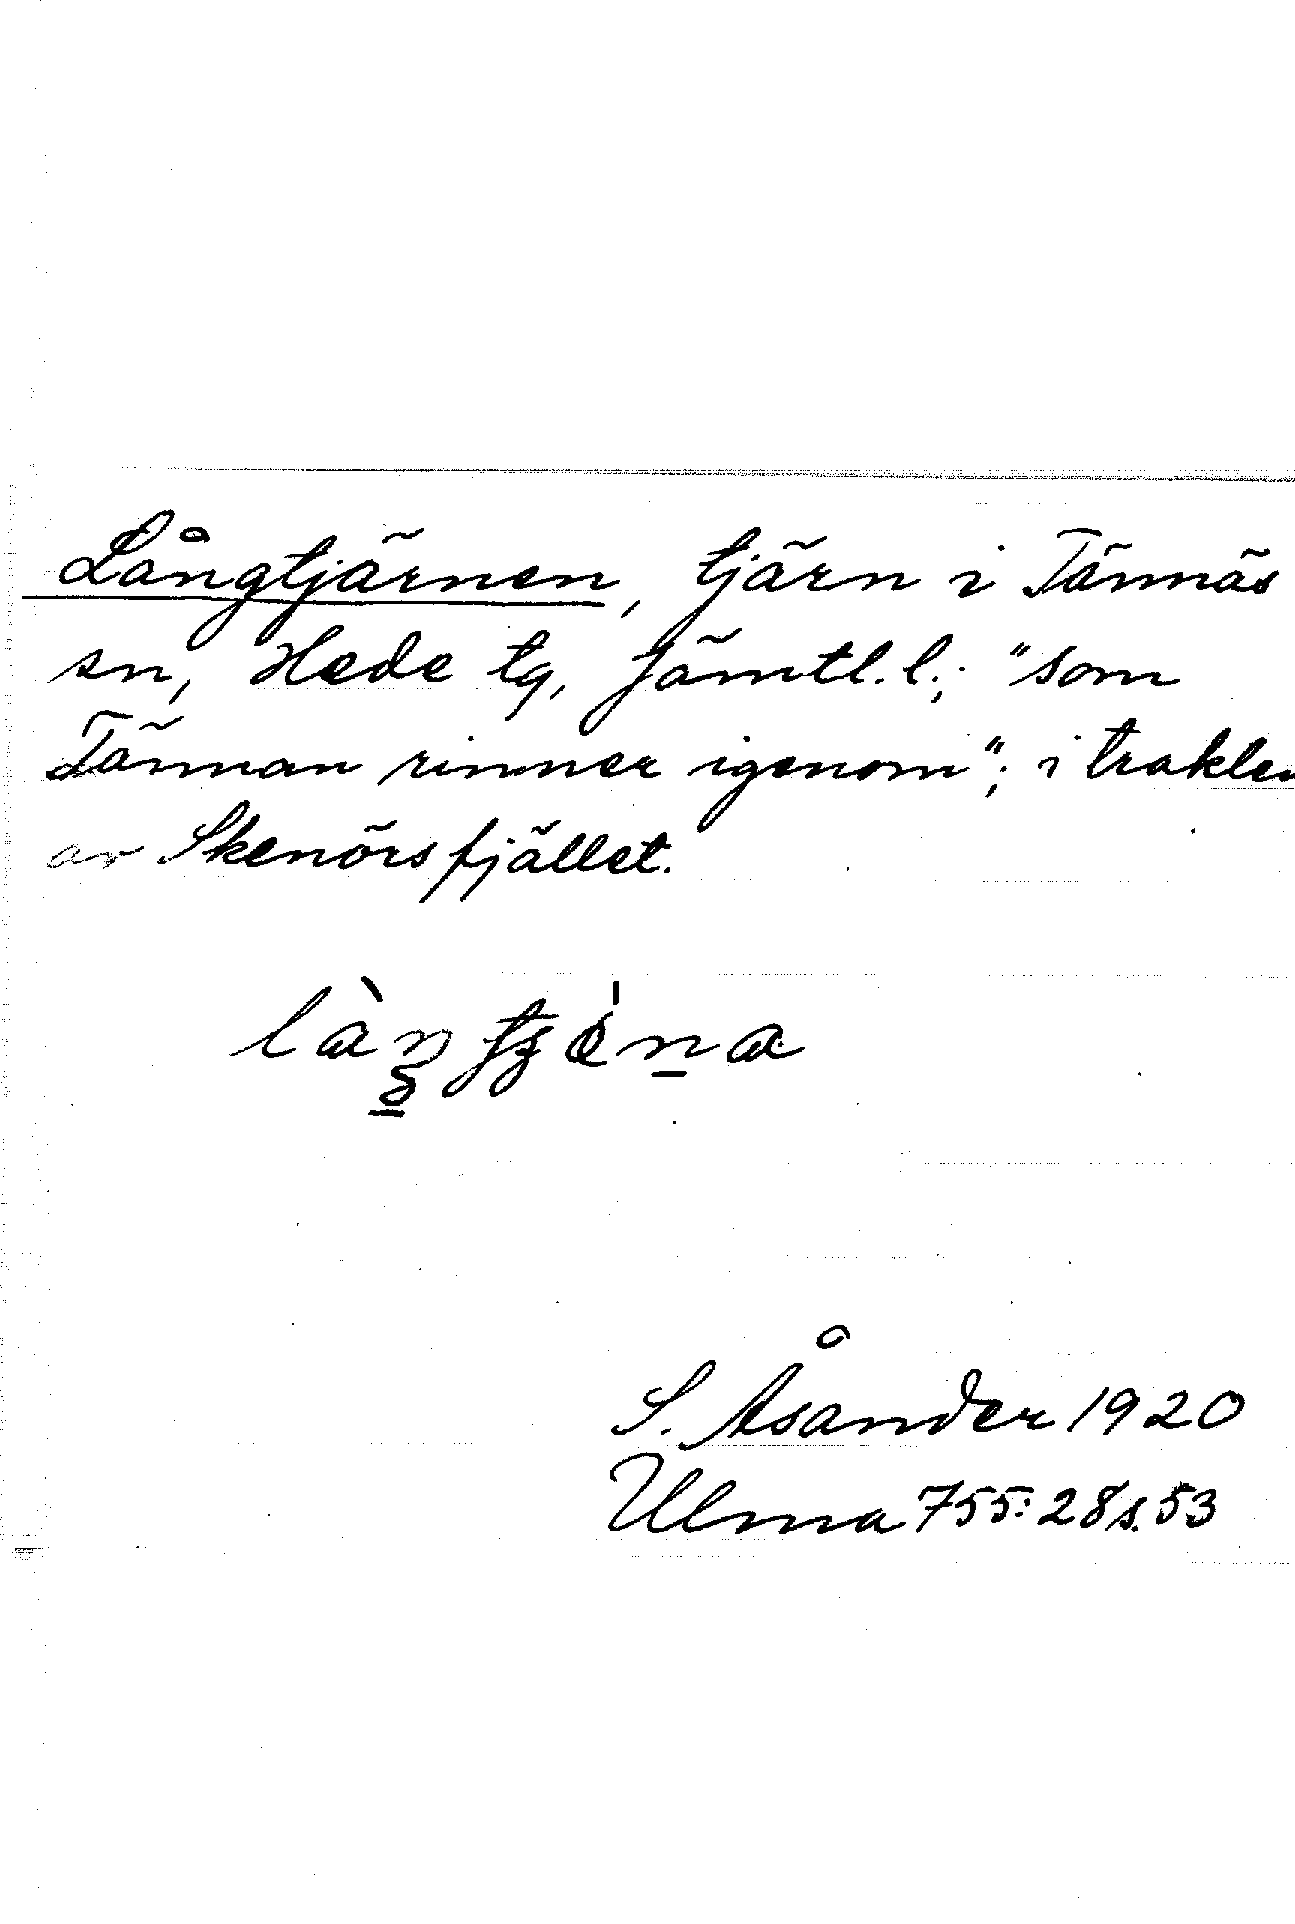 Långtjärnen, tjärn i Tännäs
sn, Hede tg, Jämtl. l.; "som
Tännan rinner igenom"; i trakten
av Skenörsfjället.
S. Åsander 1920
Ulma 755:28 s. 53